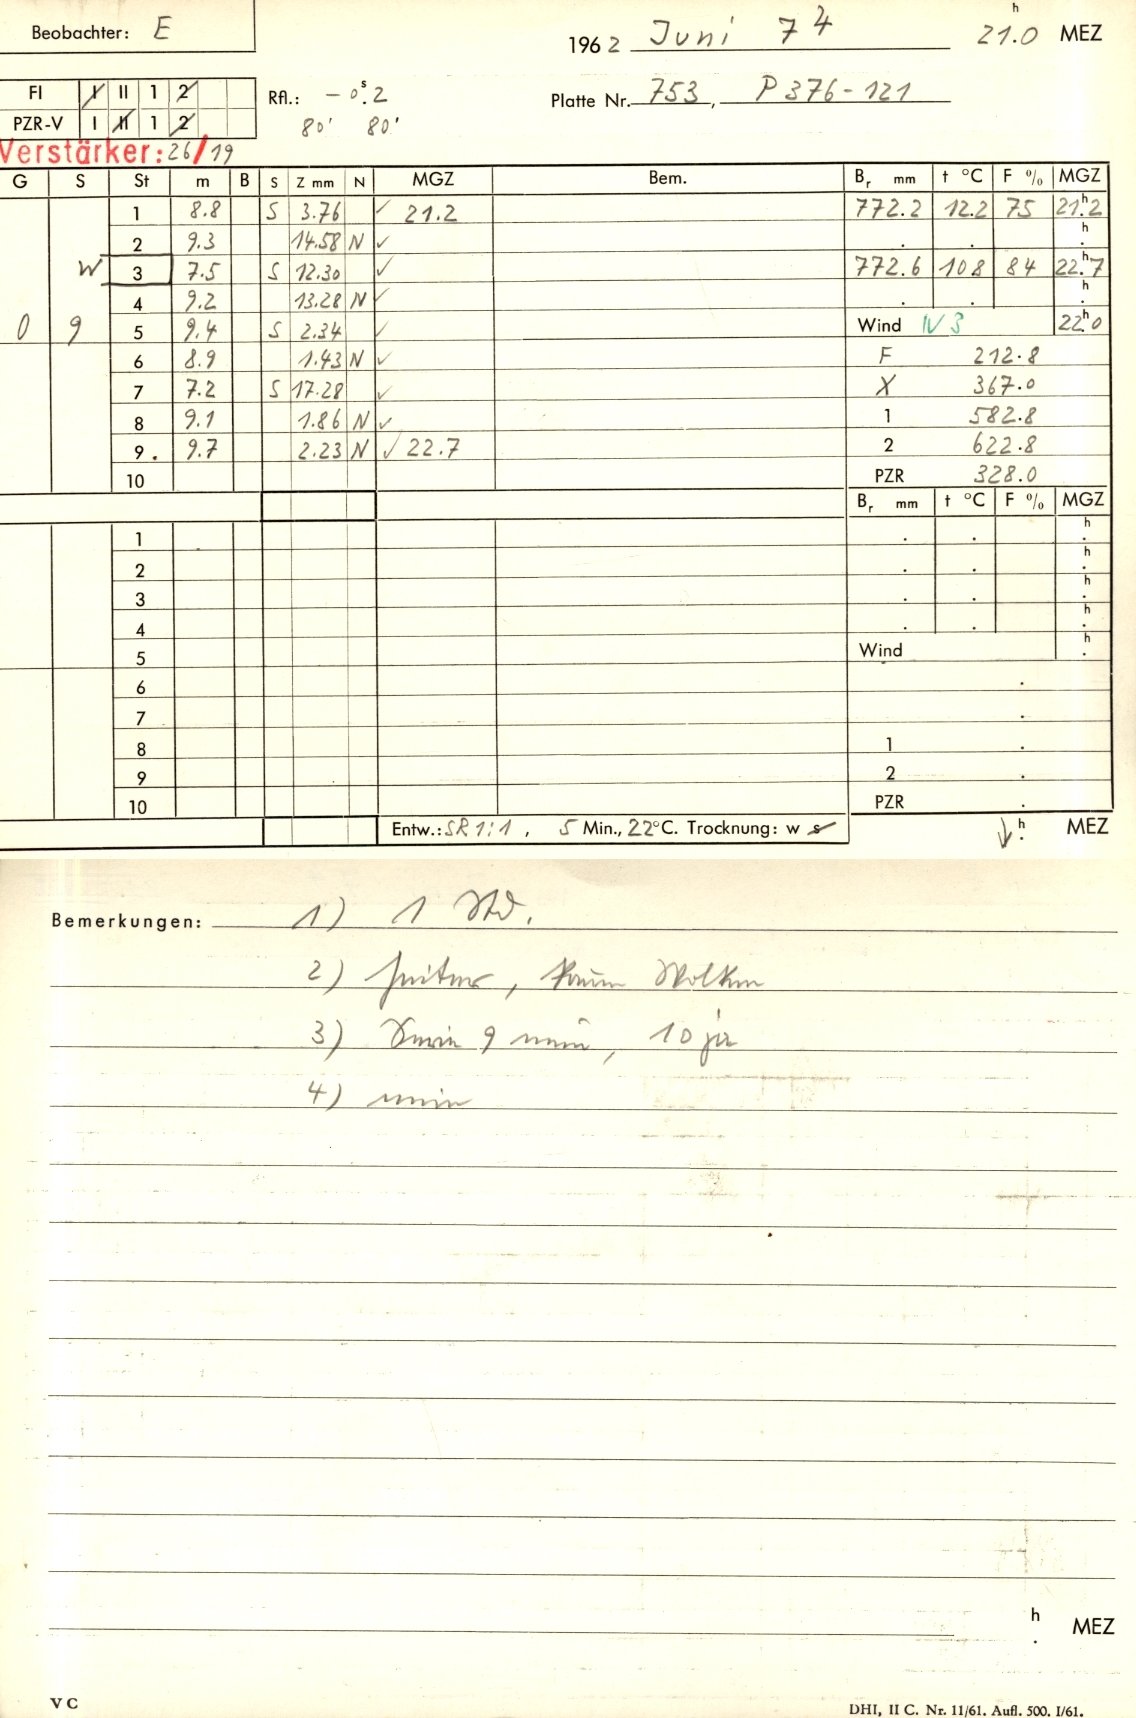 Beobachter: E
1962 Juni 7 4 21.0 h MEZ
FI I II 1 2
Rfl.: - 0 s. 2
Platte Nr. 753, P 376-121
PZR-V I II 1 2
80' 80'
Verstärker: 26/19
G S St m B S Z mm N MGZ Bem. Br mm t °C F % MGZ
1 8.8 S 3.76 ✓ 21.2 772.2 12.2 75 21 h 2
2 9.3 14.58 N ✓ . . h .
W 3 7.5 S 12.30 ✓ 772.6 10 8 84 22 h 7
4 9.2 13.28 N ✓ . . h .
0 9 5 9.4 S 2.34 ✓ Wind W 3 22 h 0
6 8.9 1.43 N ✓ F 212.8
7 7.2 S 17.28 ✓ X 367.0
8 9.1 1.86 N ✓ 1 582.8
9. 9.7 2.23 N ✓ 22.7 2 622.8
10 PZR 328.0
Br mm t °C F % MGZ
1 . . h .
2 . . h .
3 . . h .
4 . . h .
5 Wind h .
6 .
7 .
8 1 .
9 2 .
10 PZR .
Entw.: SR 1:1, 5 Min., 22°C. Trocknung: w s h . MEZ
Bemerkungen: 1) 1 Std.
2) heiter, kaum Wolken
3) Serie 9 nein, 10 ja
4) nein
h . MEZ
V C
DHI, II C. Nr. 11/61. Aufl. 500. I/61.